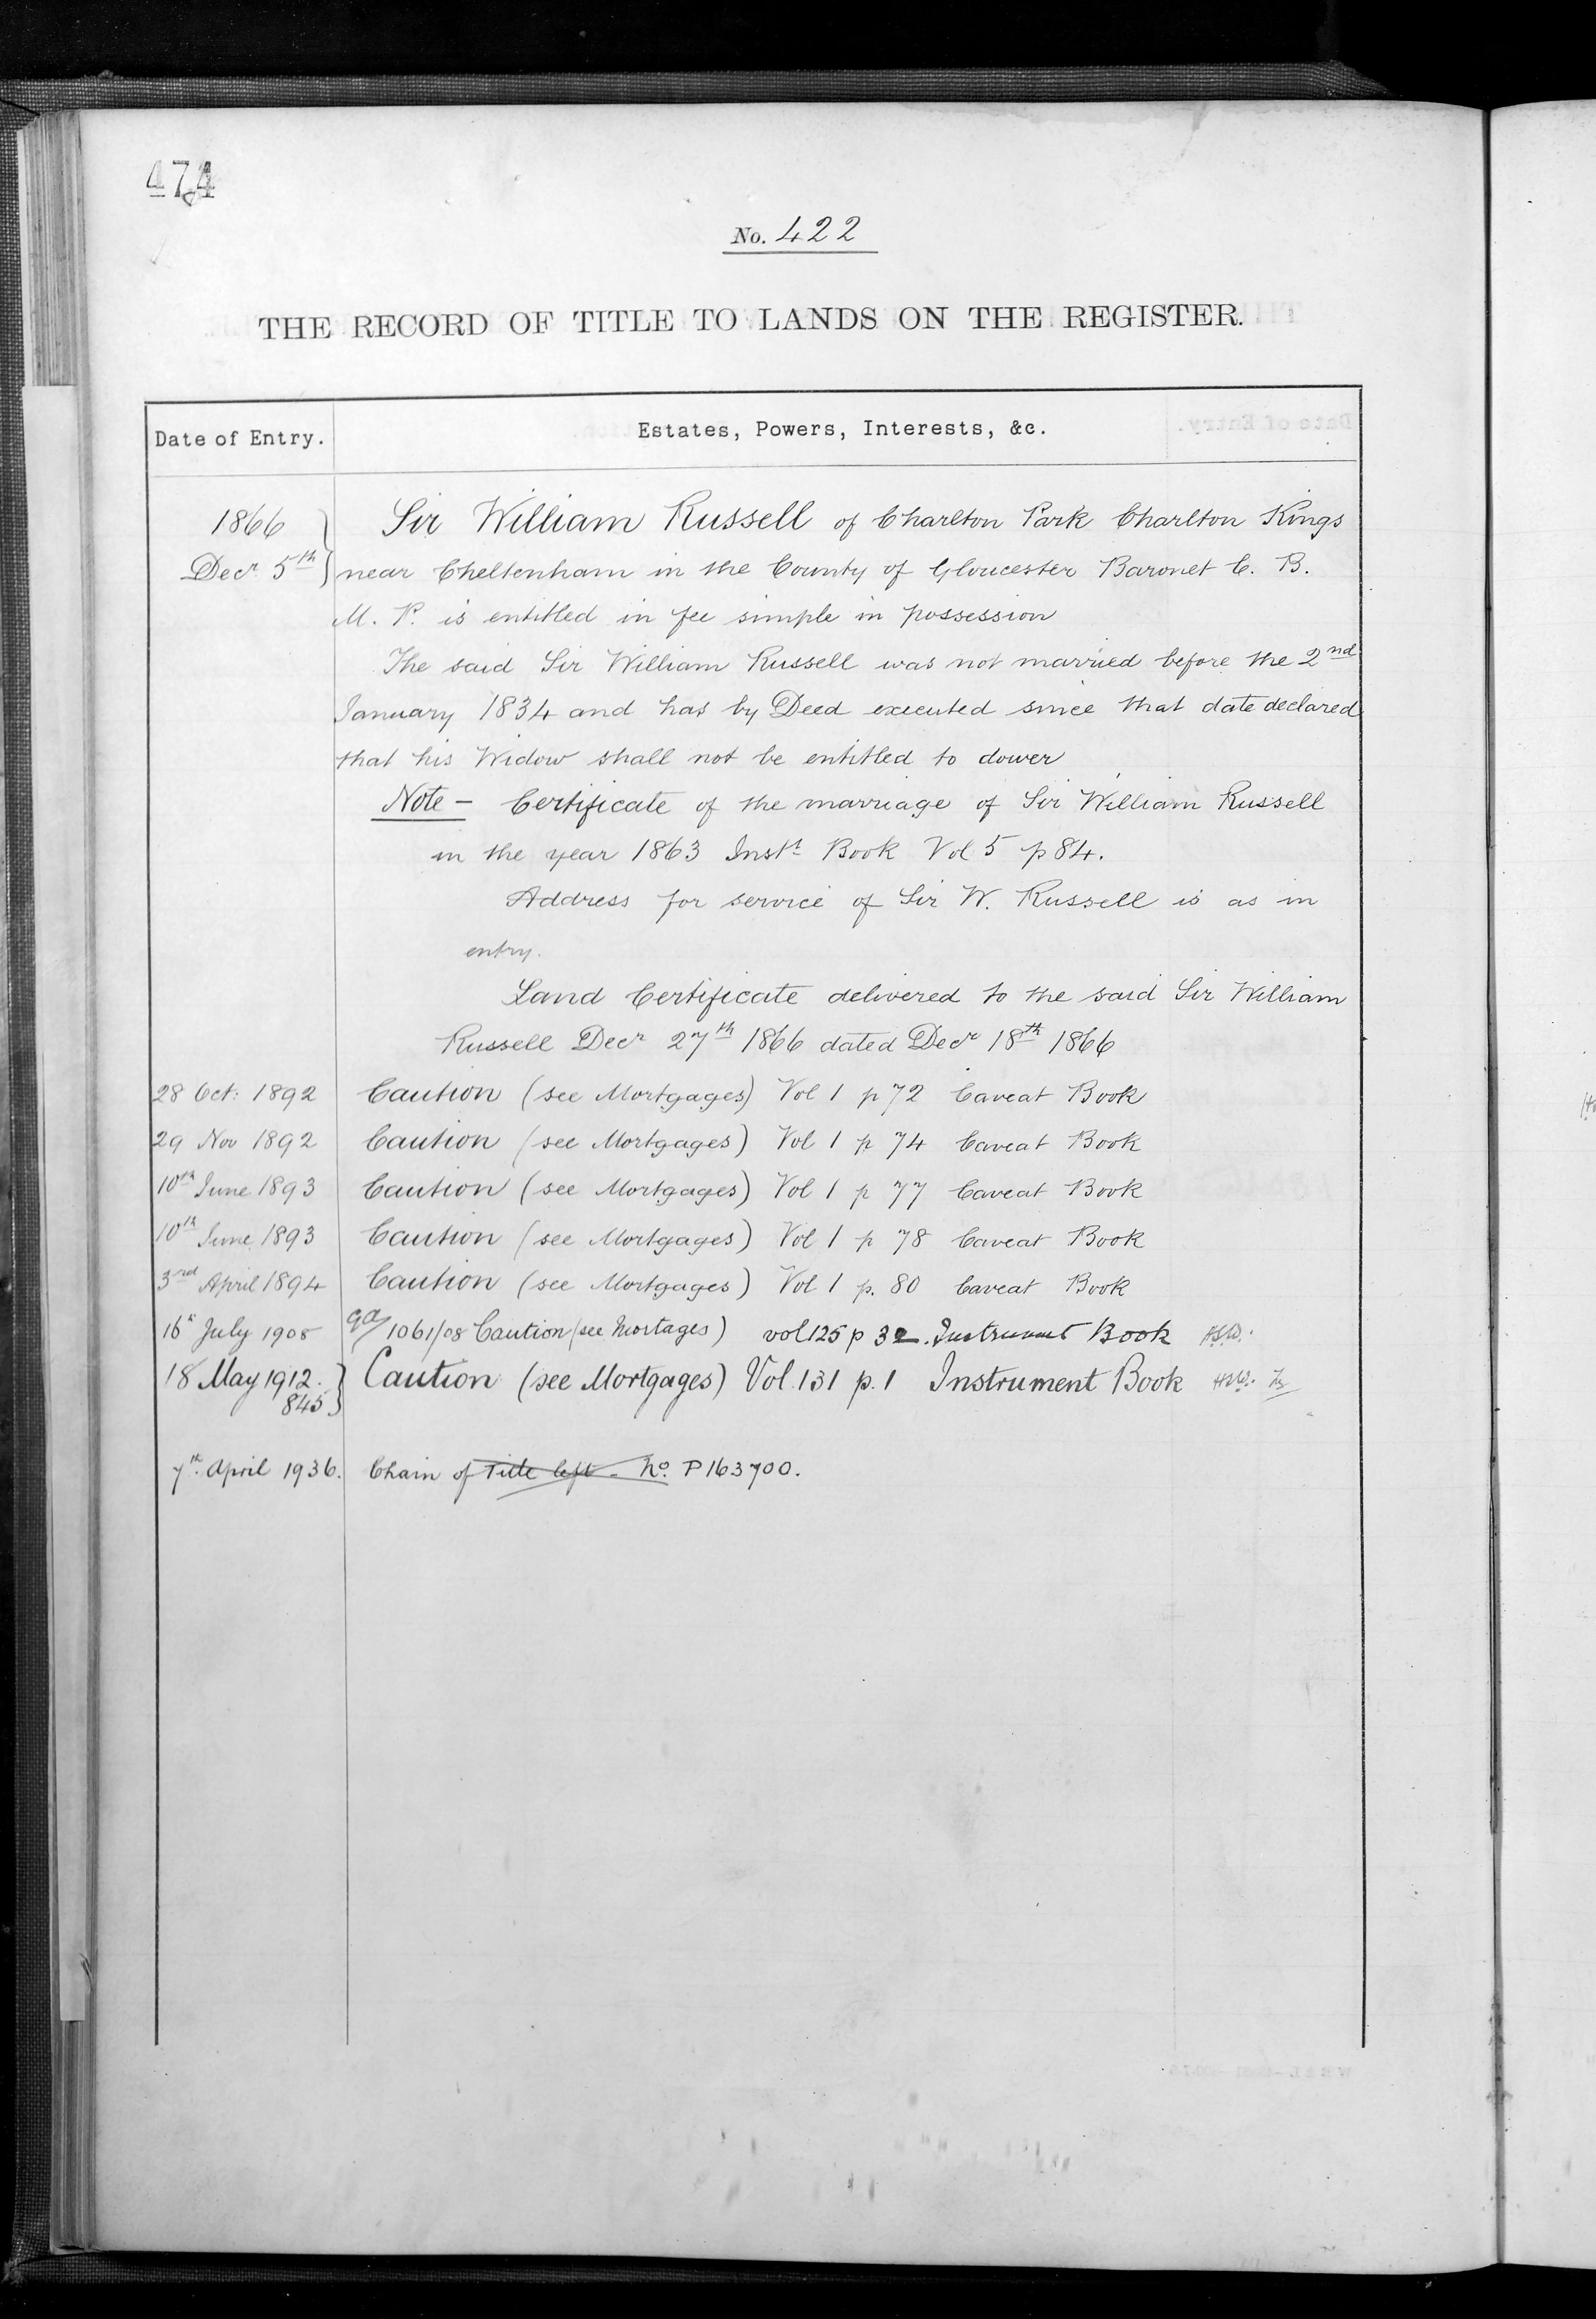 474
No. 422
THE RECORD OF TITLE TO LANDS ON THE REGISTER.
Date of Entry. Estates, Powers, Interests, &c.
1866 Sir William Russell of Charlton Park Charlton Kings
Decr 5th near Cheltenham in the County of Gloucester Baronet C. B.
M. P. is entitled in fee simple in possession
The said Sir William Russell was not married before the 2nd
January 1834 and has by Deed executed since that date declared
that his Widow shall not be entitled to dower
Note - Certificate of the marriage of Sir William Russell
in the year 1863 Instt Book Vol 5 p 84.
Address for service of Sir W. Russell is as in
entry.
Land Certificate delivered to the said Sir William
Russell Decr 27th 1866 dated Decr 18th 1866
28 Oct: 1892 Caution (see Mortgages) Vol 1 p 72 Caveat Book
29 Nov 1892 Caution (see Mortgages) Vol 1 p 74 Caveat Book
10th June 1893 Caution (see Mortgages) Vol 1 p 77 Caveat Book
10th June 1893 Caution (see Mortgages) Vol 1 p 78 Caveat Book
3rd April 1894 Caution (see Mortgages) Vol 1 p. 80 Caveat Book
16th July 1908 1061/08 Caution (see Mortages) vol 125 p 32. Instrument Book
18 May 1912. Caution (see Mortgages) Vol. 131 p. 1 Instrument Book
845
7th April 1936. Chain of Title left - No. P163700.